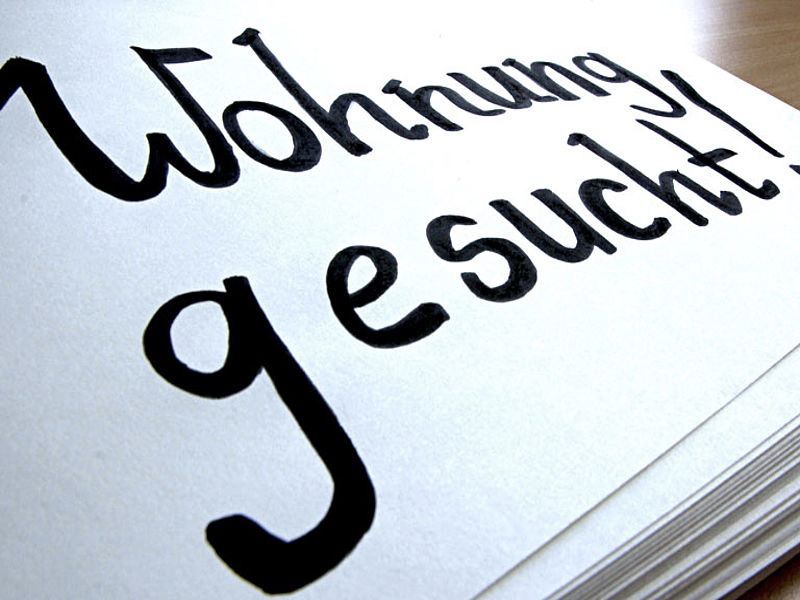 Wohnung
gesucht!